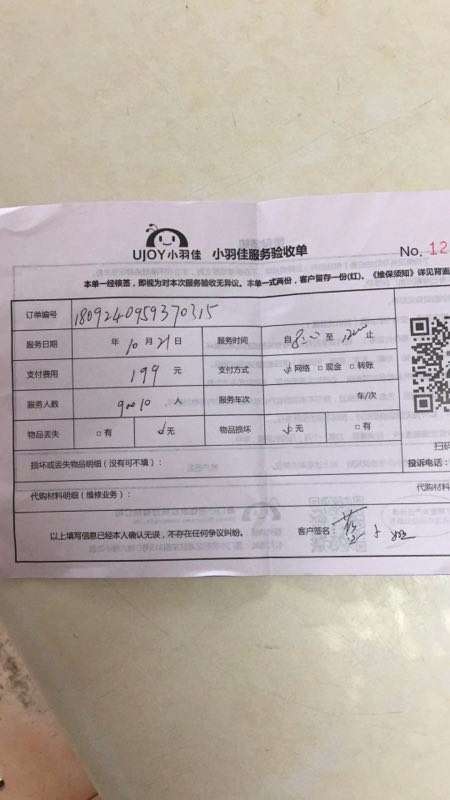 UJOY小羽佳 小羽佳服务验收单
No. 12
本单一经核签，即视为对本次服务验收无异议。本单一式两份，客户留存一份(红)。《维保须知》详见背面
订单编号 1809240959370315
服务日期 年 10 月 21 日 服务时间 自 8:00 至 12:00 止
支付费用 199 元 支付方式 ☑网络 □现金 □转账
服务人数 人 服务车次 年/次
物品丢失 □有 ☑无 物品损坏 ☑无 □有
扫码
损坏或丢失物品明细（没有可不填）：
投诉电话：
代购材料明细（维修业务）：
代购材料
以上填写信息已经本人确认无误，不存在任何争议纠纷。 客户签名：